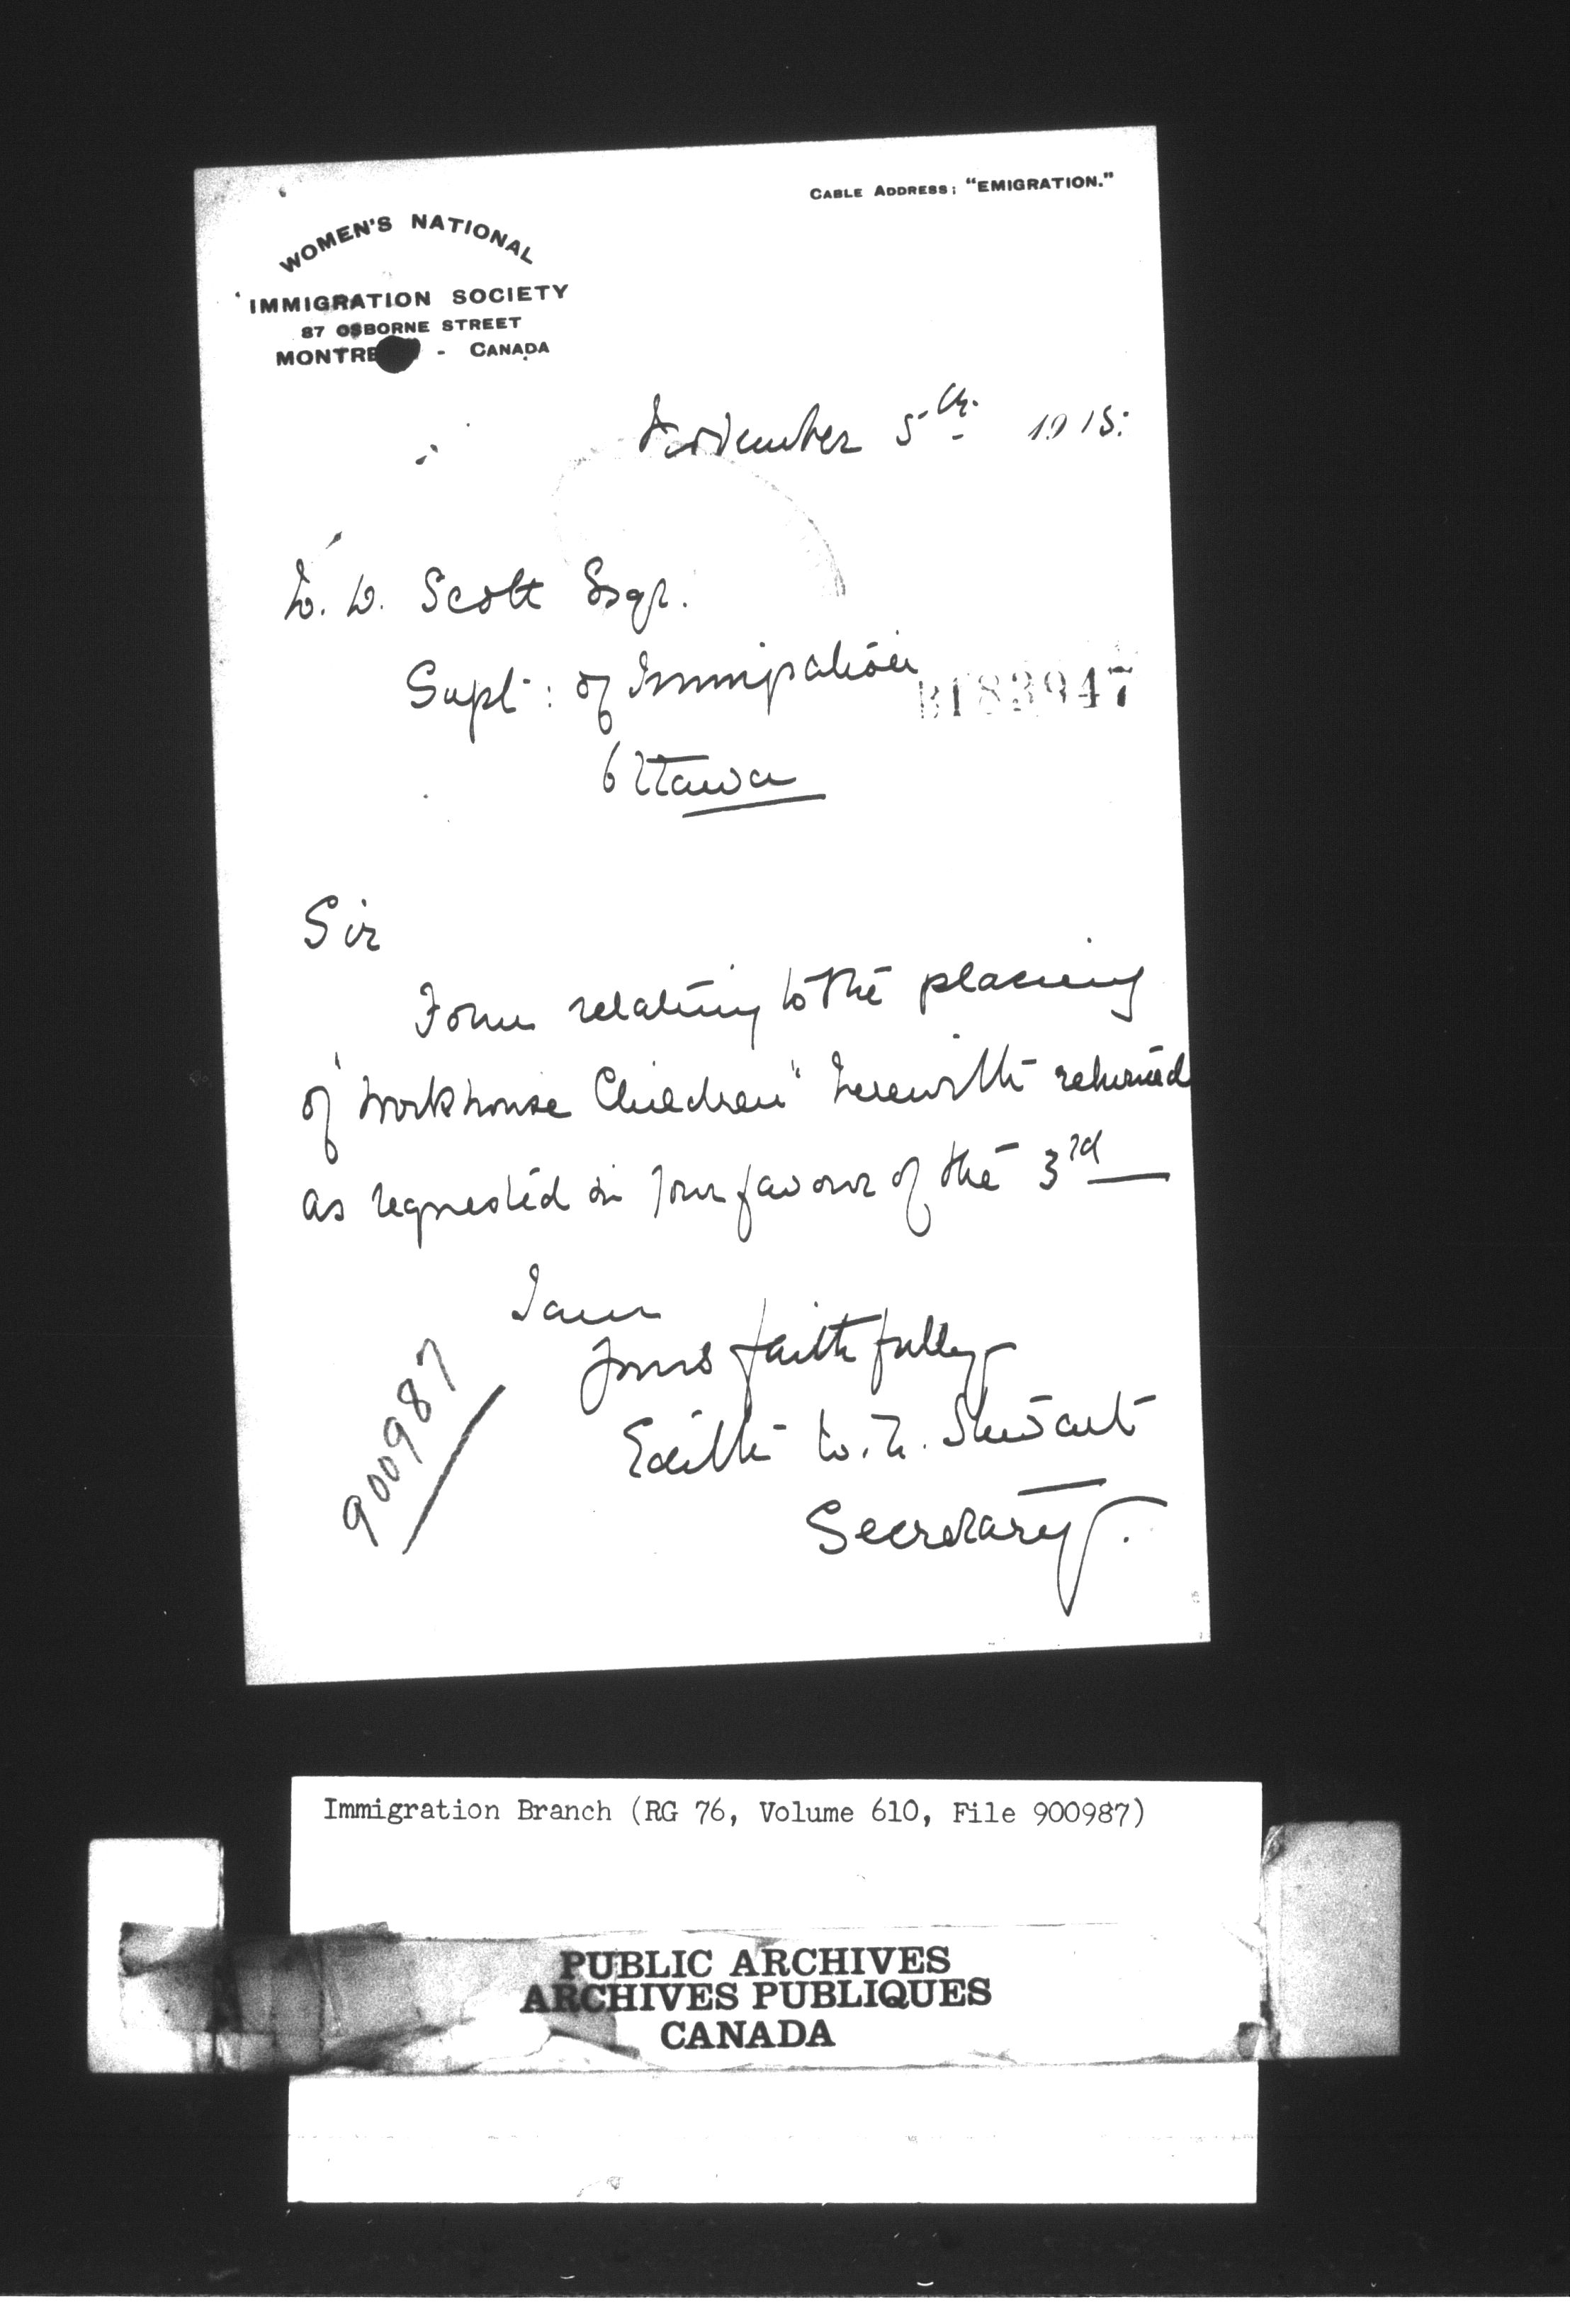 CABLE ADDRESS; "EMIGRATION."
WOMEN'S NATIONAL
IMMIGRATION SOCIETY
87 OSBORNE STREET
MONTRE - CANADA
November 5th. 1915.
W. D. Scott Esqr.
Supt: of Immigration
83947
Ottawa
Sir
Form relating to the placing
of "Workhouse Children" herewith returned
as requested in your favour of the 3rd
I am
Yours faithfully
Edith W. Stewart
Secretary.
900987
Immigration Branch (RG 76, Volume 610, File 900987)
PUBLIC ARCHIVES
ARCHIVES PUBLIQUES
CANADA